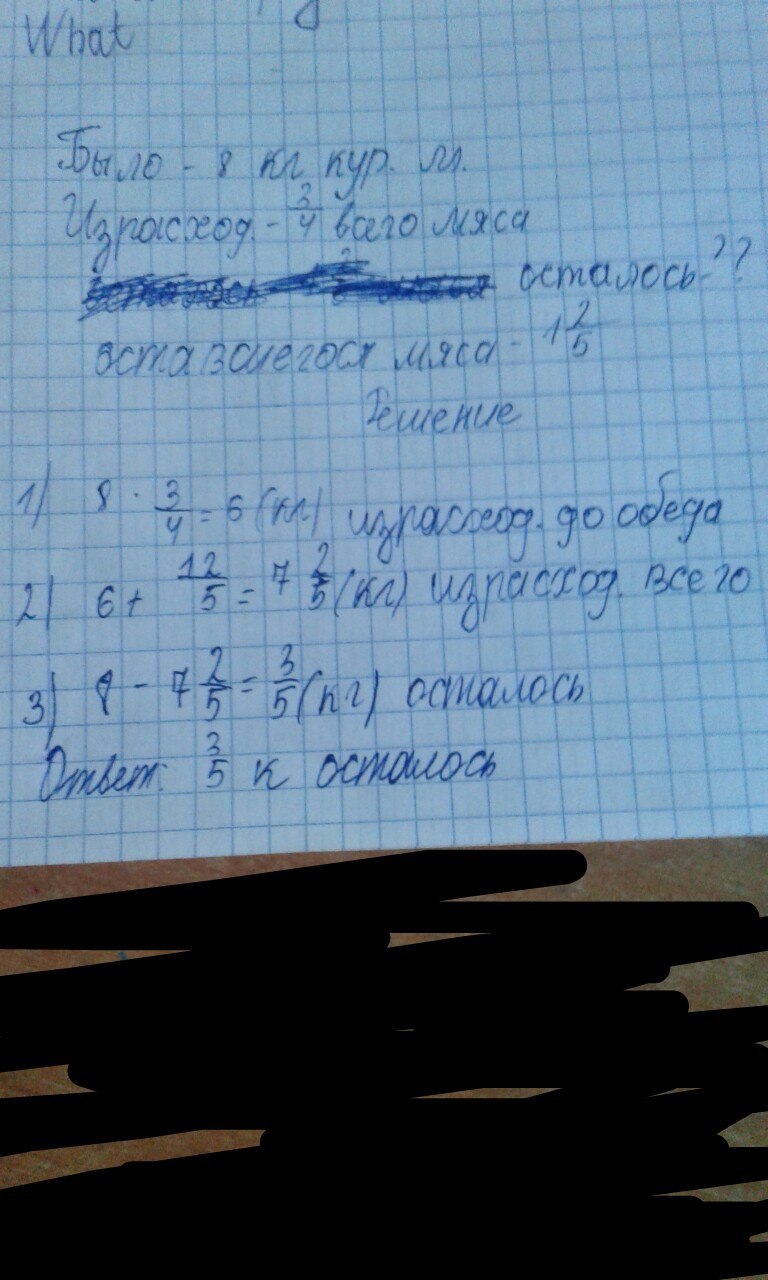 What
Было - 8 кг кур. м.
Израсход. - 3/4 всего мяса
осталось - ??
оставшегося мяса - 1 2/5
Решение
1) 8 · 3/4 = 6 (кг) израсход. до обеда
2) 6 + 12/5 = 7 2/5 (кг) израсход. всего
3) 8 - 7 2/5 = 3/5 (кг) осталось
Ответ: 3/5 к осталось